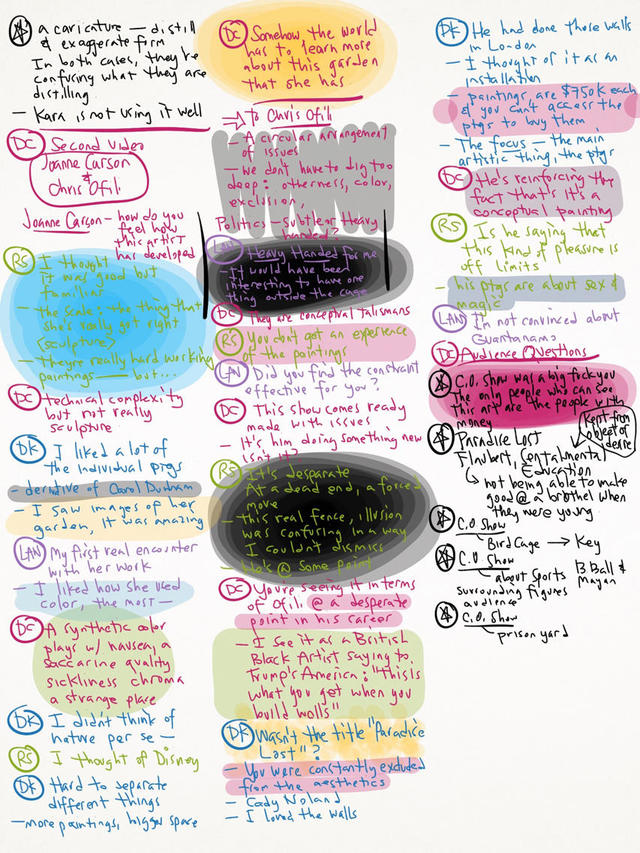 a caricature — distill
& exaggerate firm
In both cases, they're
confusing what they are
distilling
— Kara is not using it well
DC Second video
Joanne Carson
&
Chris Ofili
Joanne Carson — how do you
feel how
this artist
has developed
RS I thought
it was good but
familiar
— the scale: the thing that
she's really got right
(sculpture)
— They're really hard working
paintings — but...
DC technical complexity
but not really
sculpture
DK I liked a lot of
the individual ptgs
— derivative of Carol Dunham
— I saw images of her
garden, it was amazing
LAN My first real encounter
with her work
— I liked how she used
color, the most —
DC A synthetic color
plays w/ nausea, a
saccarine quality
sickliness chroma
a strange place
DK I didn't think of
nature per se —
RS I thought of Disney
DK Hard to separate
different things
— more paintings, bigger space
DC Somehow the world
has to learn more
about this garden
that she has
To Chris Ofili
— A circular arrangement
of issues
— We don't have to dig too
deep: otherness, color,
exclusion,
Politics — Subtle or Heavy
handed?
LAN Heavy Handed for me
— It would have been
interesting to have one
thing outside the cage
DC They are conceptual talismans
RS You don't get an experience
of the paintings
LAN Did you find the constraint
effective for you?
DC This show comes ready
made with issues
— It's him doing something new
isn't it?
RS It's desparate
At a dead end, a forced
move
— this real fence, illusion
was confusing in a way
I couldn't dismiss
— He's @ some point
DC You're seeing it in terms
of Ofili @ a desparate
point in his career
— I see it as a British
Black Artist saying to
Trump's America: "This is
what you get when you
build walls"
DK Wasn't the title "Paradice
Lost"?
— You were constantly excluded
from the aesthetics
— Cady Noland
— I loved the walls
DK He had done those walls
in London
— I thought of it as an
installation
— paintings are $750K each
& you can't access the
ptgs to buy them
— The focus — the main
artistic thing, the ptgs
DC He's reinforcing the
fact that it's a
conceptual painting
RS Is he saying that
this kind of pleasure is
off limits
— his ptgs are about sex &
magic
LAN I'm not convinced about
Guantanamo
DC Audience Questions
A C.O. Show was a big fuck you
The only people who can see
this art are the people with
money
Kept from
object of
desire
A Paradise Lost
Flaubert, Centalmental
Education
not being able to make
good @ a brothel when
they were young
A C.O. Show
Bird Cage → Key
A C.O. Show
about Sports B Ball &
Surrounding figures
audience
A C.O. Show
prison yard